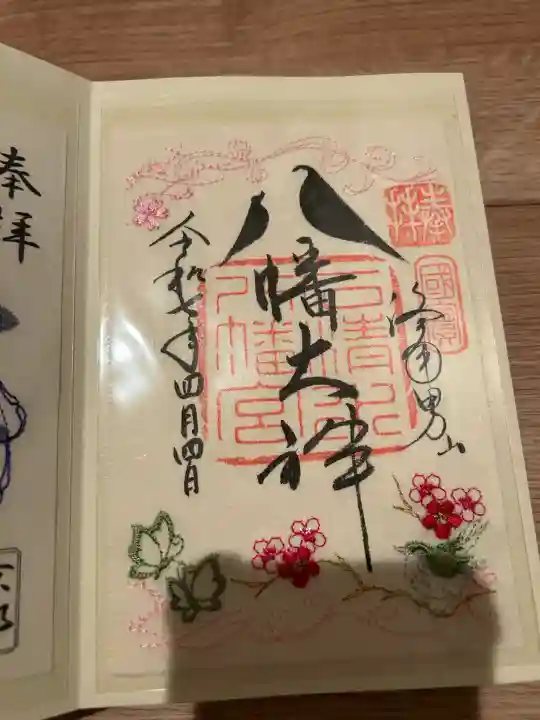 奉拝
國寶
男山
八幡大神
石清水八幡宮
令和七年四月四日
奉拝